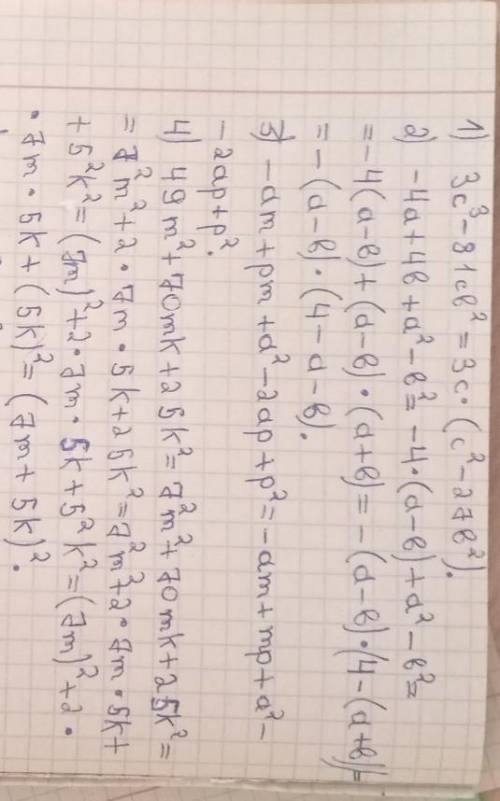 1) 3c³-81cb²=3c·(c²-27b²).
2) -4a+4b+a²-b²=-4·(a-b)+a²-b²=
=-4(a-b)+(a-b)·(a+b)=-(a-b)·(4-(a+b)=
=-(a-b)·(4-a-b).
3) -am+pm+a²-2ap+p²=-am+mp+a²-
-2ap+p².
4) 49m²+70mk+25k²=7²m²+70mk+25k²=
=7²m²+2·7m·5k+25k²=7²m²+2·7m·5k+
+5²k²=(7m)²+2·7m·5k+5²k²=(7m)²+2·
·7m·5k+(5k)²=(7m+5k)².